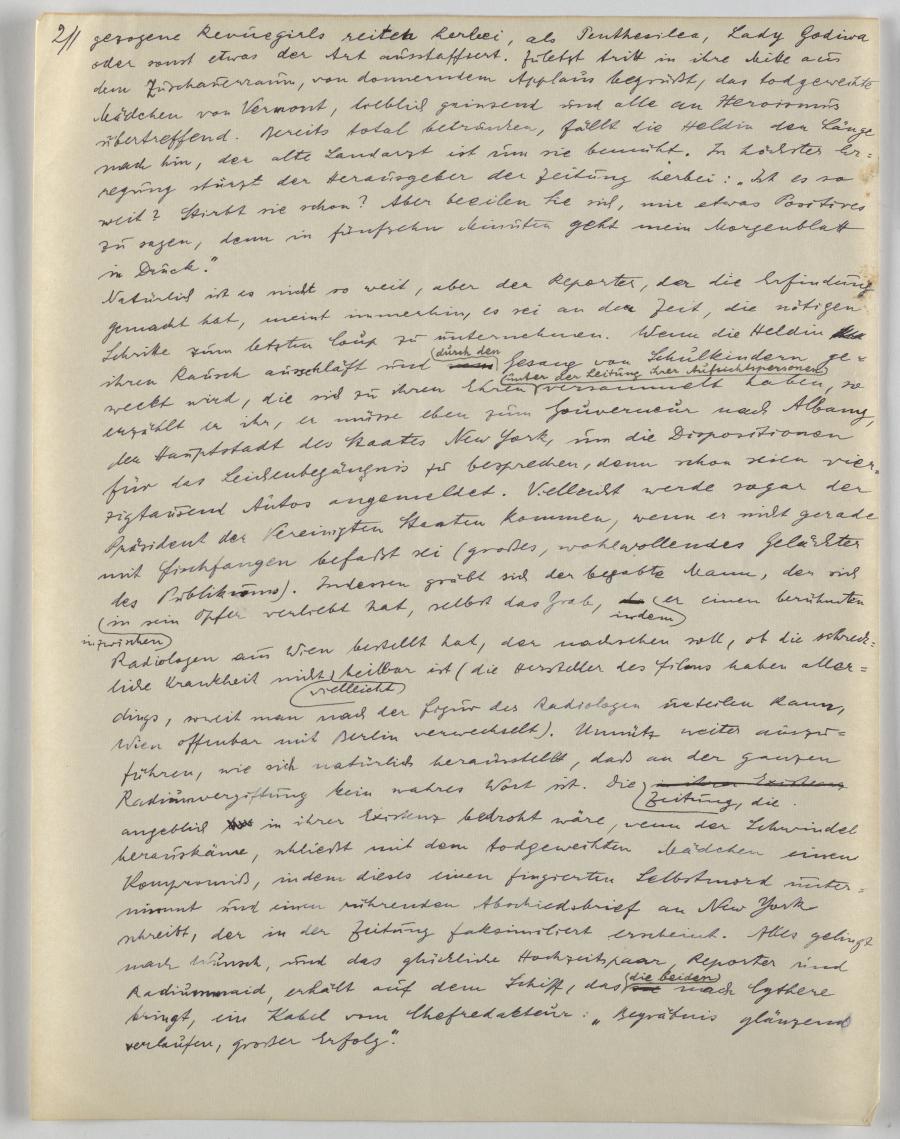 2// gezogene Revuegirls reiten herbei, als Penthesilea, Lady Godiva
oder sonst etwas der Art ausstaffiert. Zuletzt tritt in ihre Mitte aus
dem Zuschauerraum, von donnerndem Applaus begrüßt, das todgeweihte
Mädchen von Vermont, lieblich grinsend und alle an Heroismus
übertreffend. Bereits total betrunken, fällt die Heldin der Länge
nach hin, der alte Landarzt ist um sie bemüht. In höchster Er-
regung stürzt der Herausgeber der Zeitung herbei: „Ist es so
weit? Stirbt sie schon? Aber beeilen Sie sich, mir etwas Positives
zu sagen, denn in fünfzehn Minuten geht mein Morgenblatt
in Druck."
Natürlich ist es nicht so weit, aber der Reporter, der die Erfindung
gemacht hat, meint immerhin, es sei an der Zeit, die nötigen
Schritte zum letzten Coup zu unternehmen. Wenn die Heldin
ihren Rausch ausschläft und durch den Gesang von Schulkindern ge-
weckt wird, die sich zu ihren Ehren unter der Leitung ihrer Aufsichtspersonen versammelt haben, so
erzählt er ihr, er müsse eben zum Gouverneur nach Albany,
der Hauptstadt des Staates New York, um die Dispositionen
für das Leichenbegängnis zu besprechen, denn schon seien vier-
zigtausend Autos angemeldet. Vielleicht werde sogar der
Präsident der Vereinigten Staaten kommen, wenn er nicht gerade
mit Fischfangen befaßt sei (großes, wohlwollendes Gelächter
des Publikums). Indessen gräbt sich der begabte Mann, der sich
inzwischen in sein Opfer verliebt hat, selbst das Grab, indem er einen berühmten
Radiologen aus Wien bestellt hat, der nachsehen soll, ob die schreck-
liche Krankheit nicht vielleicht heilbar ist (die Hersteller des Films haben aller-
dings, soweit man nach der Figur des Radiologen urteilen kann,
Wien offenbar mit Berlin verwechselt). Unnütz weiter auszu-
führen, wie sich natürlich herausstellt, daß an der ganzen
Radiumvergiftung kein wahres Wort ist. Die in ihrer Existenz Zeitung, die
angeblich in ihrer Existenz bedroht wäre, wenn der Schwindel
herauskäme, schließt mit dem todgeweihten Mädchen einen
Kompromiß, indem dieses einen fingierten Selbstmord unter-
nimmt und einen rührenden Abschiedsbrief an New York
schreibt, der in der Zeitung faksimiliert erscheint. Alles gelingt
nach Wunsch, und das glückliche Hochzeitspaar, Reporter und
Radiummaid, erhält auf dem Schiff, das die beiden nach Cythere
bringt, ein Kabel vom Chefredakteur: „Begräbnis glänzend
verlaufen, großer Erfolg".